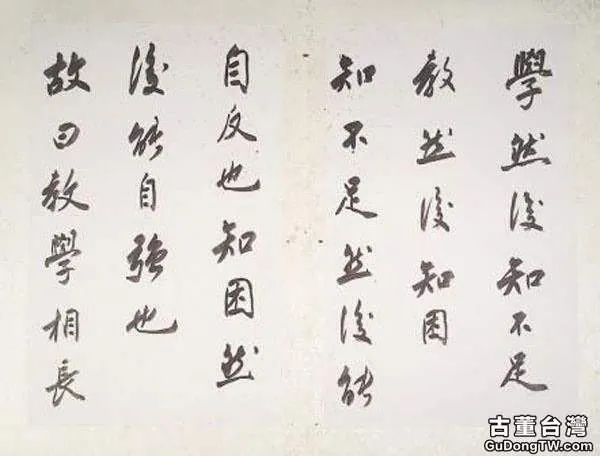 學然後知不足
教然後知困
知不足然後能
自反也知困然
後能自強也
故曰教學相長
古董台灣
GuDongTW.com